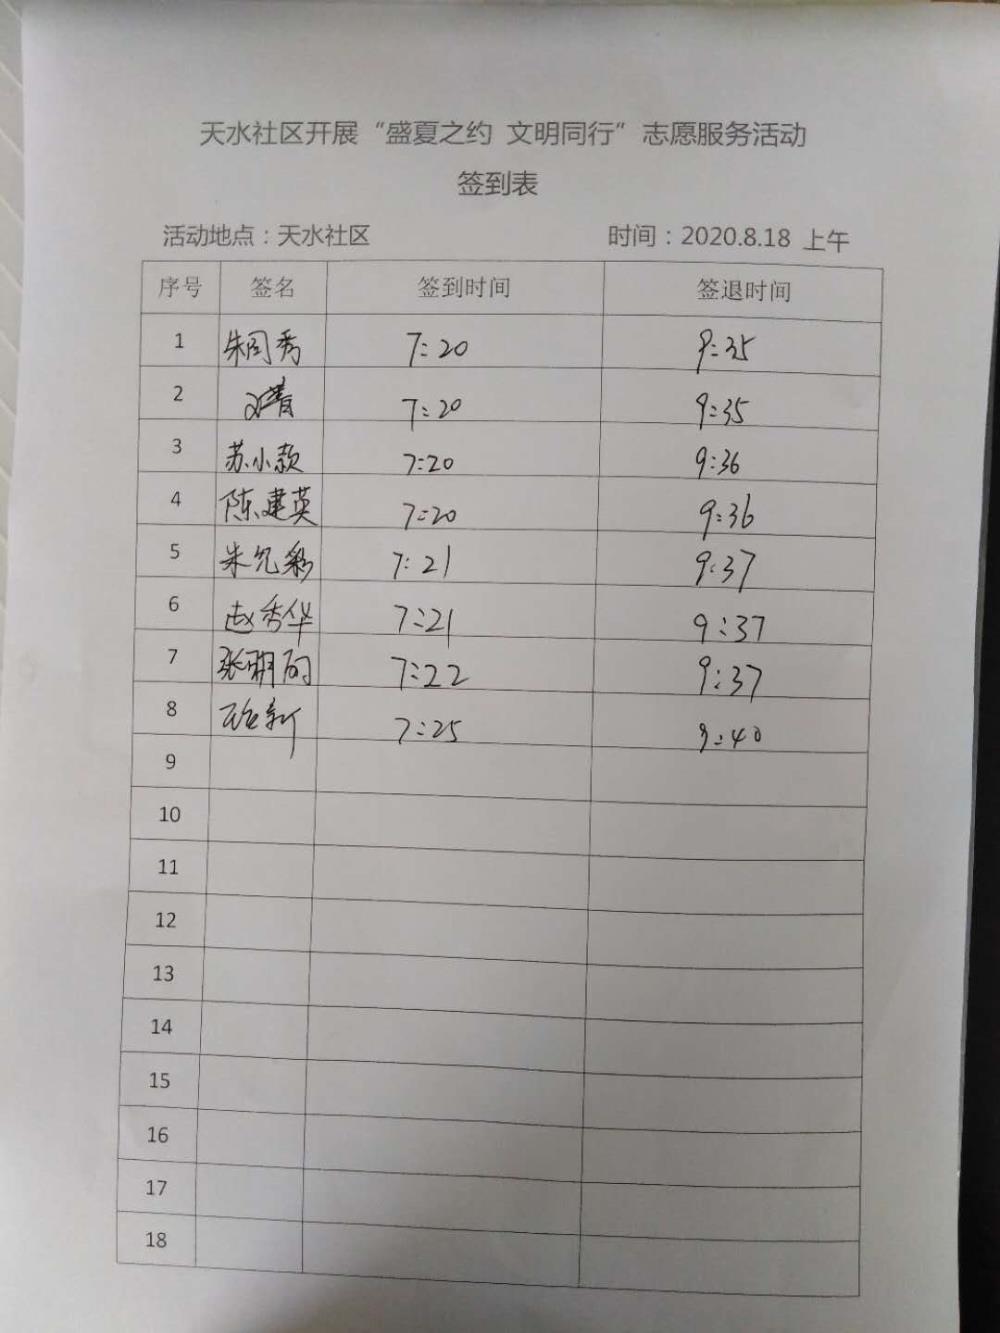 天水社区开展“盛夏之约 文明同行”志愿服务活动
签到表
活动地点：天水社区 时间：2020.8.18 上午
序号 签名 签到时间 签退时间
1 朱同秀 7:20 9:35
2 7:20 9:35
3 苏小款 7:20 9:36
4 陈建英 7:20 9:36
5 7:21 9:37
6 赵秀华 7:21 9:37
7 7:22 9:37
8 7:25 9:40
9
10
11
12
13
14
15
16
17
18